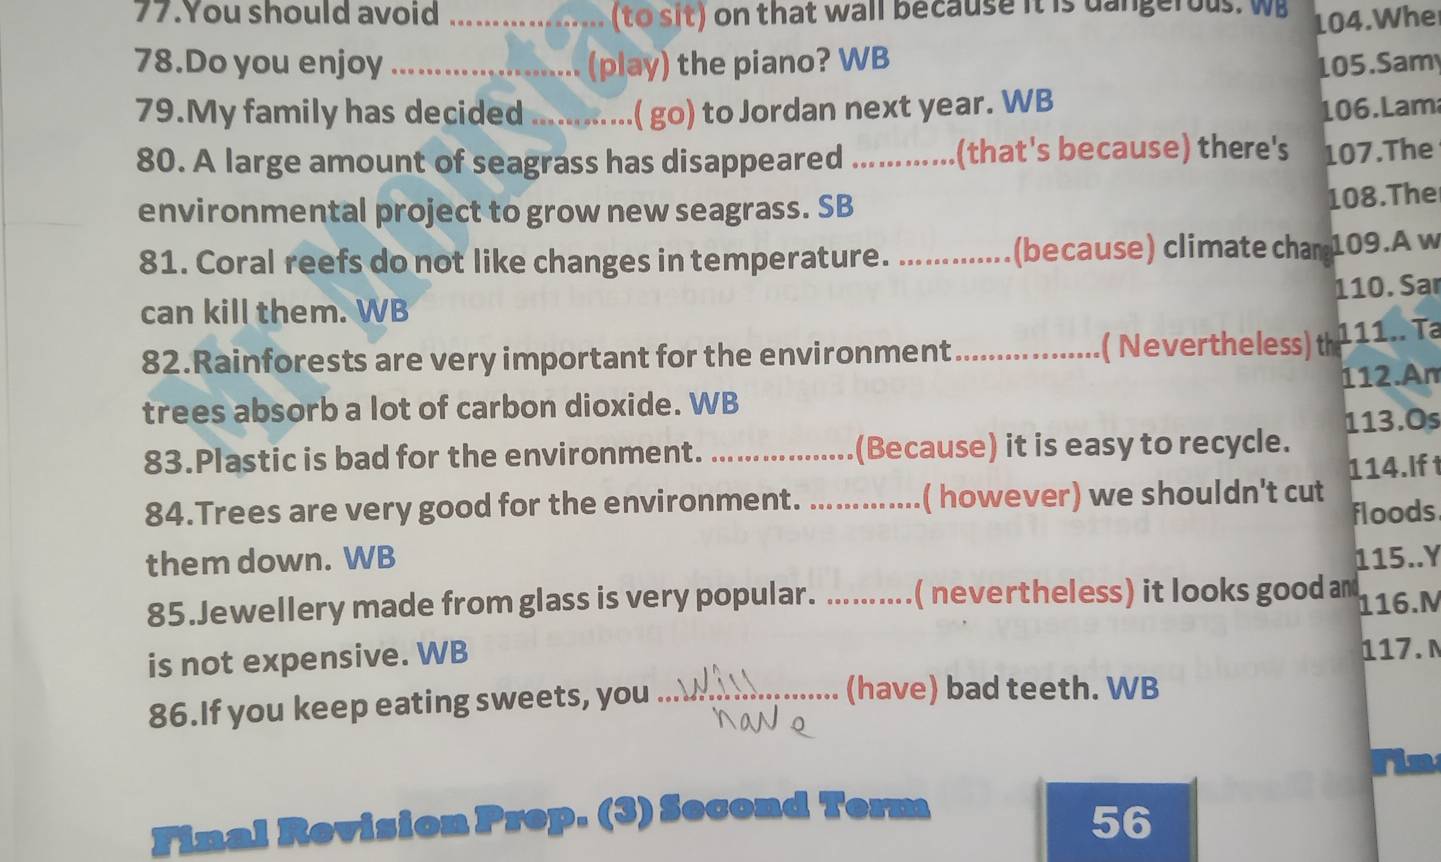 77.You should avoid .................. (to sit) on that wall because it is dangerous. WB
78.Do you enjoy ...................... (play) the piano? WB
79.My family has decided ............( go) to Jordan next year. WB
80. A large amount of seagrass has disappeared ............(that's because) there's
environmental project to grow new seagrass. SB
81. Coral reefs do not like changes in temperature. .............(because) climate chan
can kill them. WB
82.Rainforests are very important for the environment..................( Nevertheless) the
trees absorb a lot of carbon dioxide. WB
83.Plastic is bad for the environment. .................(Because) it is easy to recycle.
84.Trees are very good for the environment. .............( however) we shouldn't cut
them down. WB
85.Jewellery made from glass is very popular. ..........( nevertheless) it looks good and
is not expensive. WB
86.If you keep eating sweets, you ...will.................. (have) bad teeth. WB
have
Final Revision Prep. (3) Second Term
56
Mr Mousta
104.Whe
105.Samy
106.Lama
107.The
108.The
109.A w
110. Sar
111.. Ta
112.Am
113.Os
114.If t
floods.
115..Y
116.M
117. M
Fina